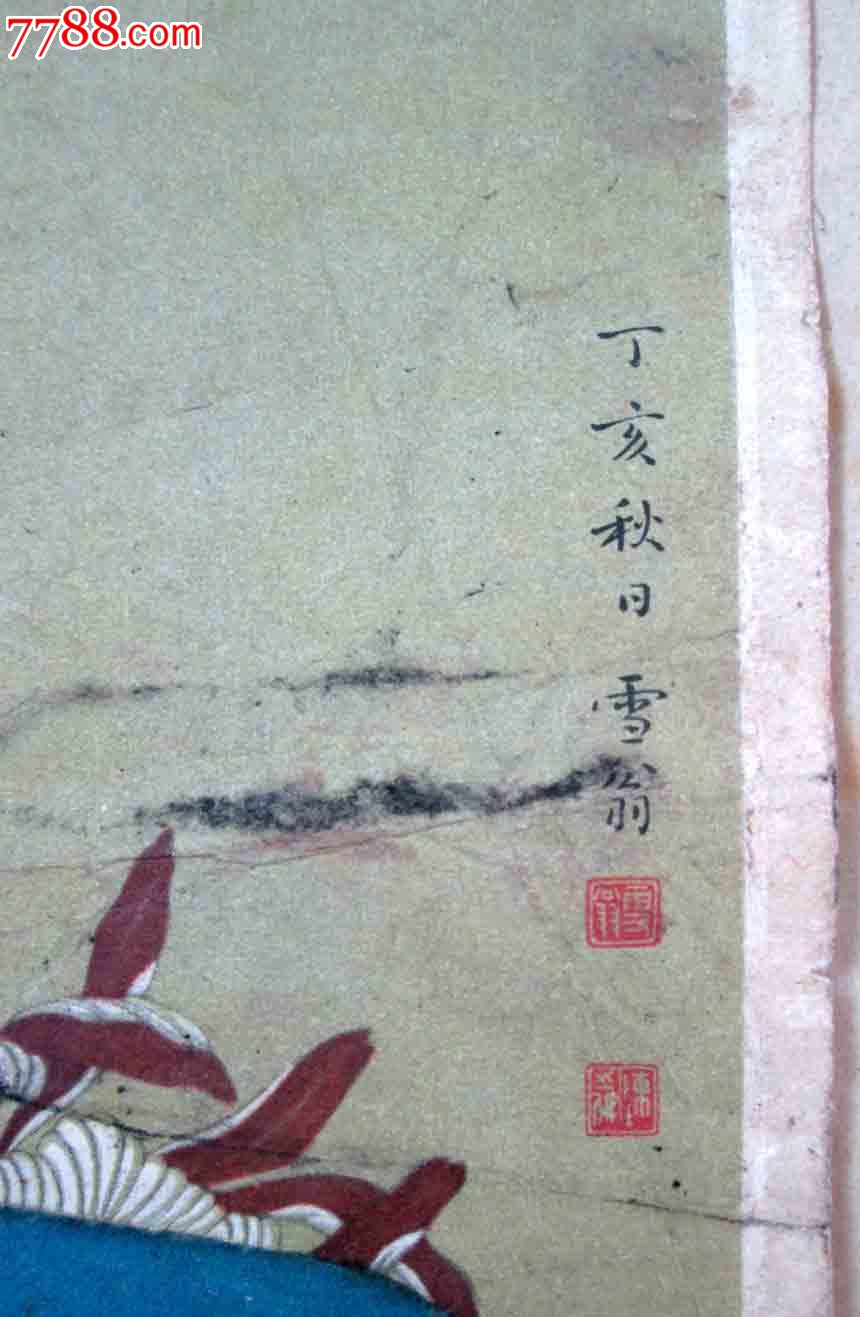 7788.com
丁亥秋日 雪翁
雪翁